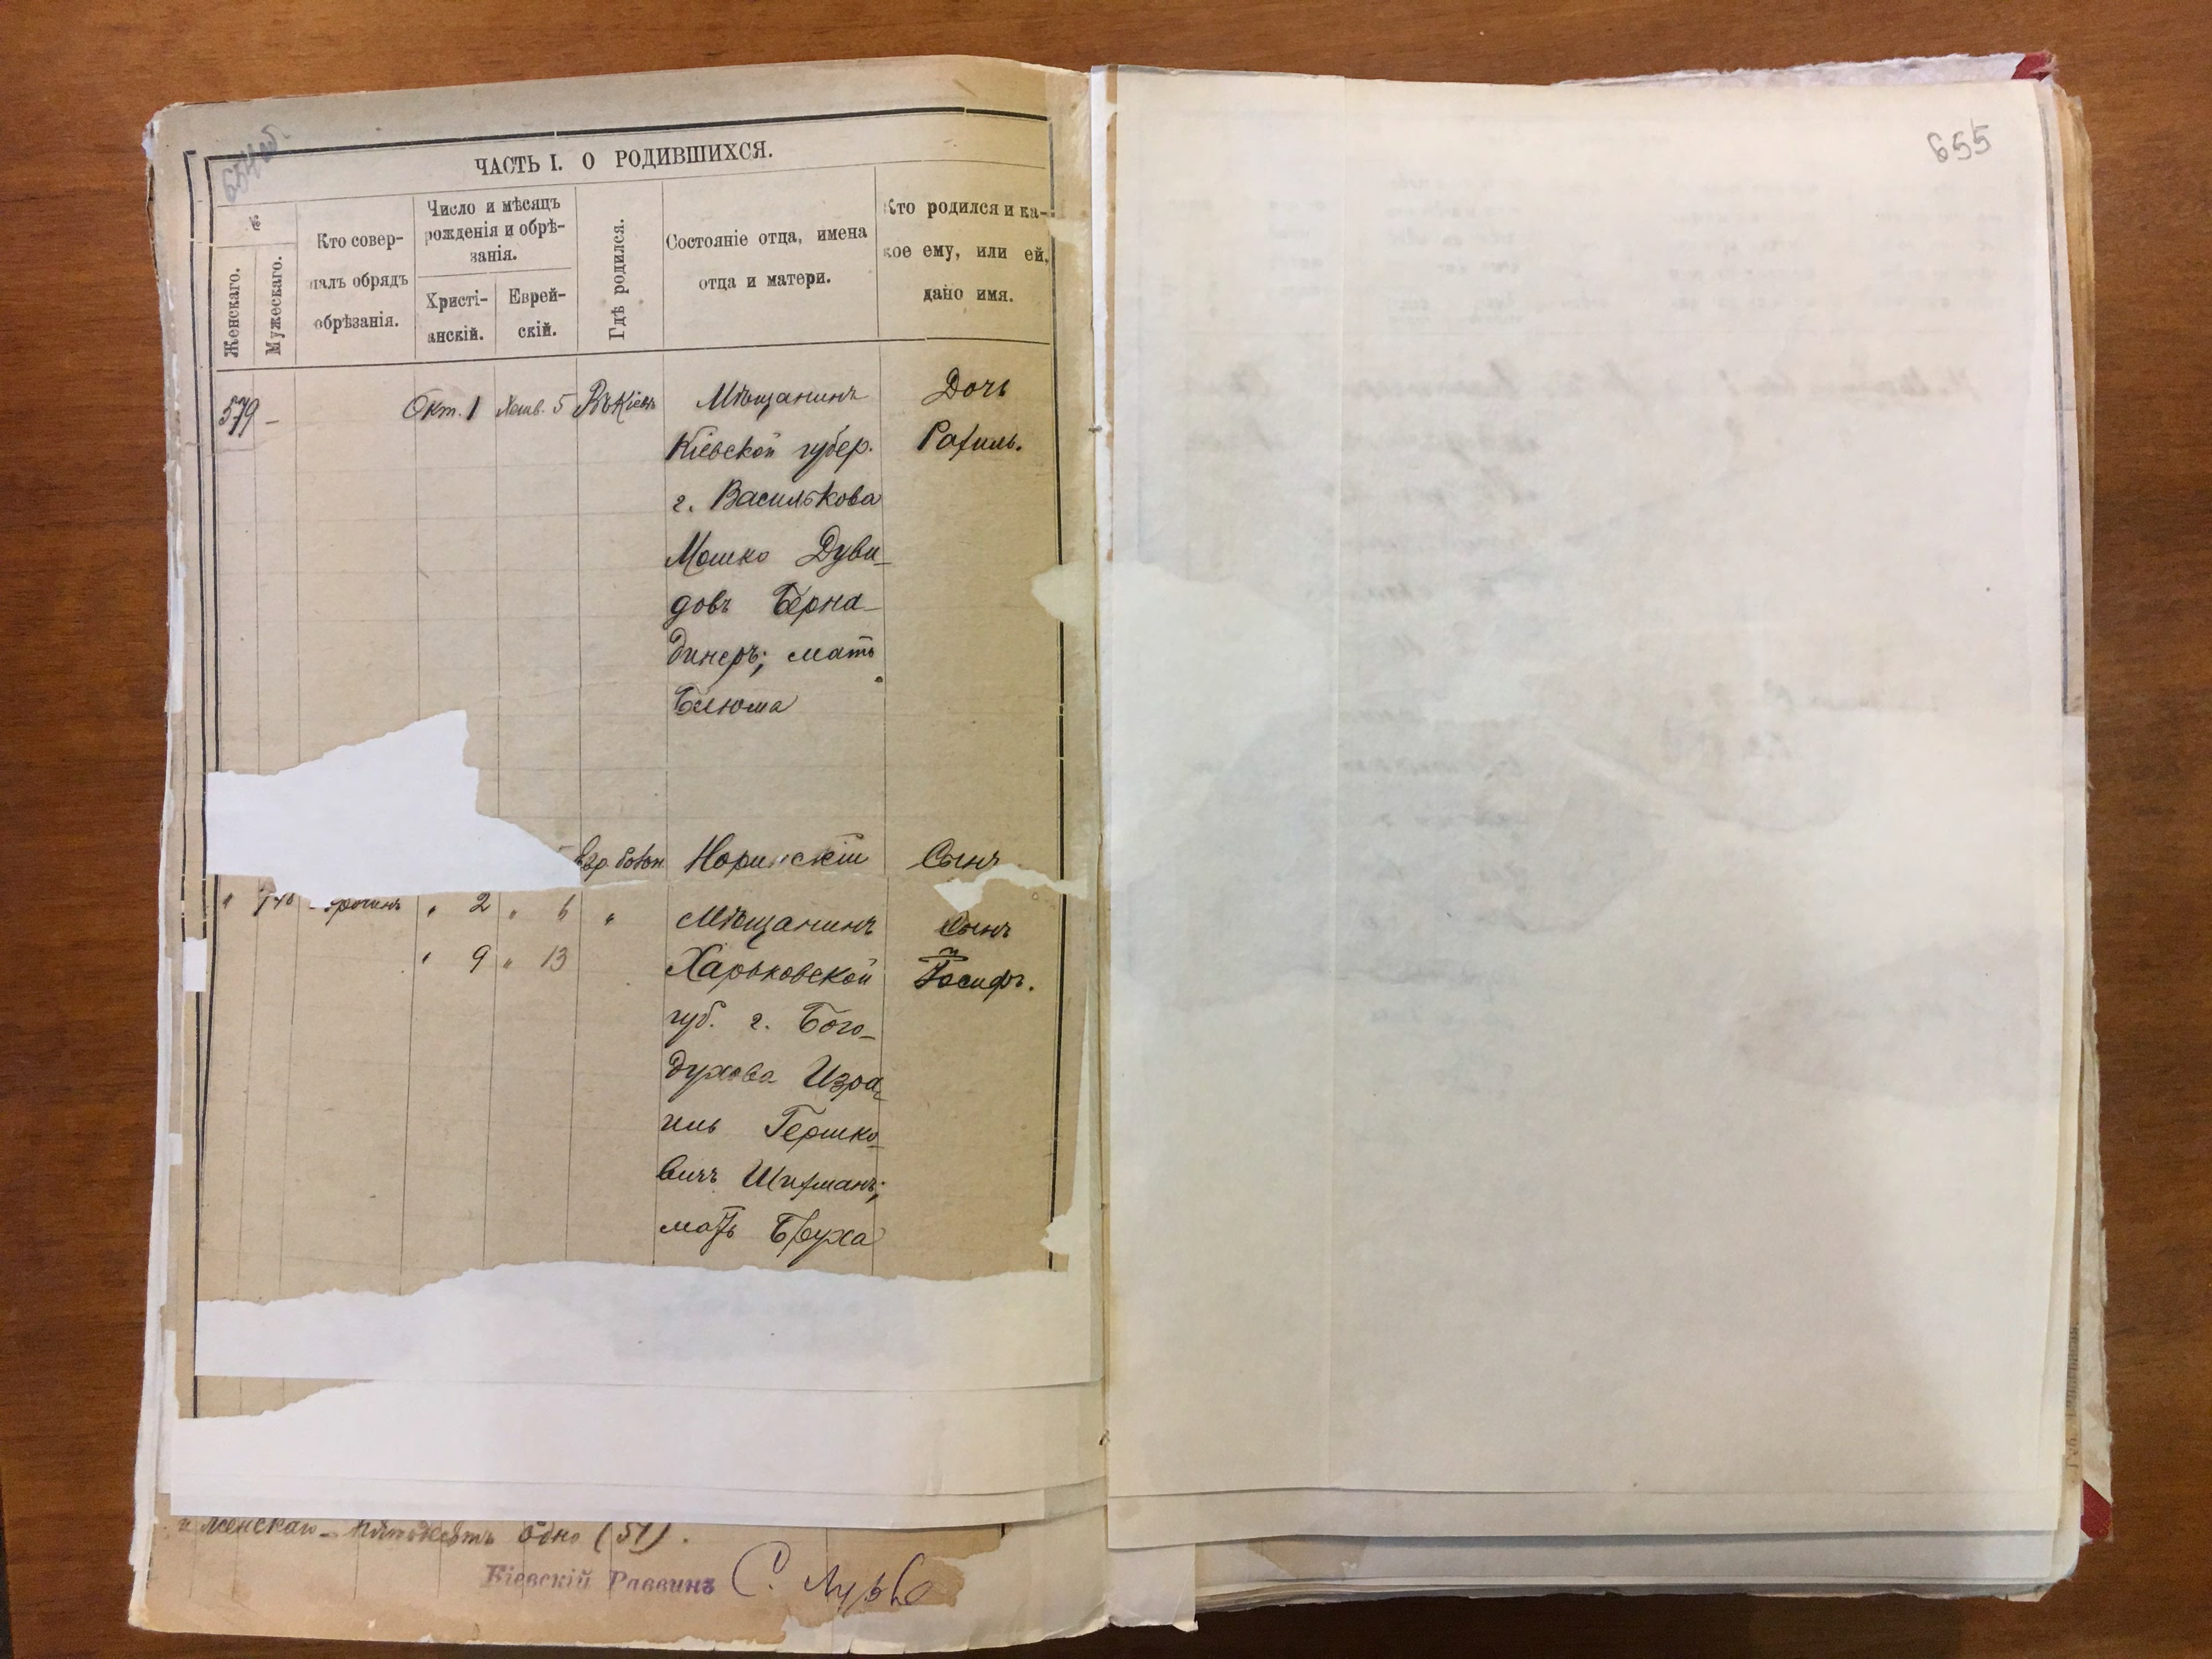 654об.
655
ЧАСТЬ I. О РОДИВШИХСЯ.
№
Женскаго.
Мужескаго.
Кто совер-
шалъ обрядъ
обрѣзанія.
Число и мѣсяцъ
рожденія и обрѣ-
занія.
Христі-
анскій.
Еврей-
скій.
Гдѣ родился.
Состояніе отца, имена
отца и матери.
Кто родился и ка-
кое ему, или ей,
дано имя.
579 — Окт. 1 Хешв. 5 Въ Кіевѣ Мѣщанинъ Дочь
Кіевской губер. Рахиль.
г. Василькова
Мошко Дуви-
довъ Берна-
динеръ; мать
Блюма
Норинскій Сынъ
" " 2 " 6 " Мѣщанинъ Сынъ
" 9 " 13 Харьковской Іосифъ.
губ. г. Бого-
духова Изра-
иль Гершко-
вичъ Шихманъ;
мать Бруха
и женскаго — пятьдесятъ одно (51).
Кіевскій Раввинъ С. Лурье